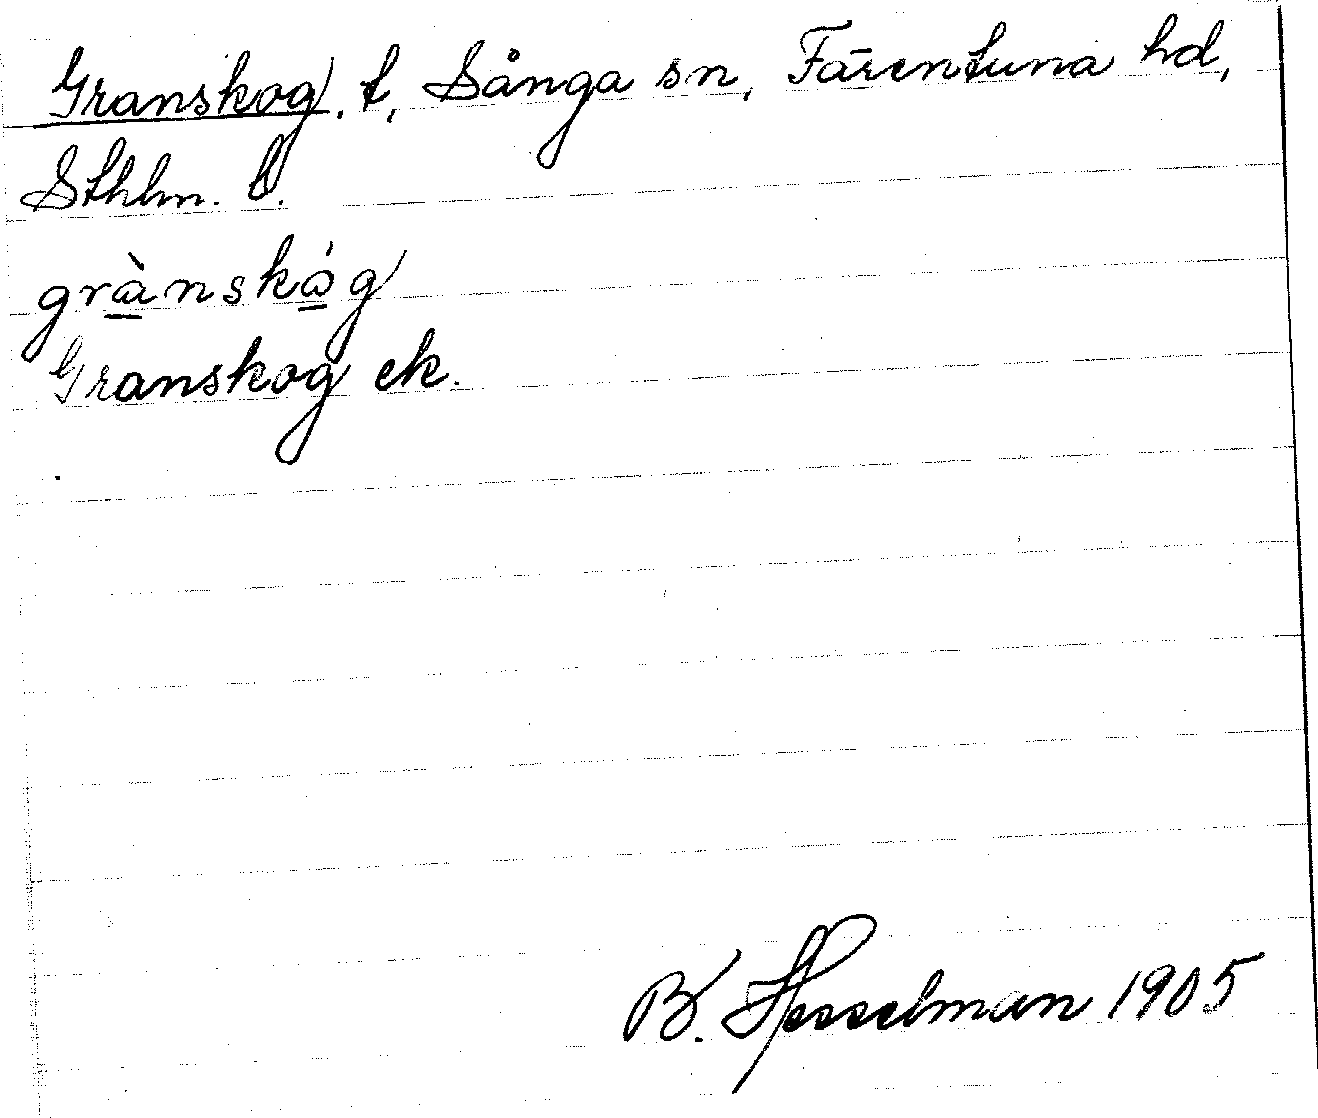 Granskog, t, Sånga sn, Färentuna hd,
Sthlm. l.
grànskåg
Granskog ek.
B. Hesselman 1905